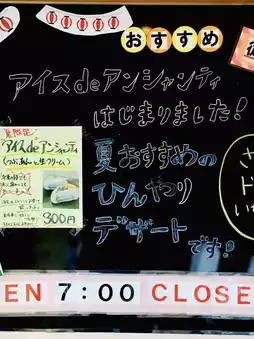 おすすめ
アイスdeアンシャンティ
はじまりました!
夏おすすめの
ひんやり
デザートです!
夏限定
アイスdeアンシャンティ
(つぶあんと生クリーム)
300円
EN 7:00 CLOSE